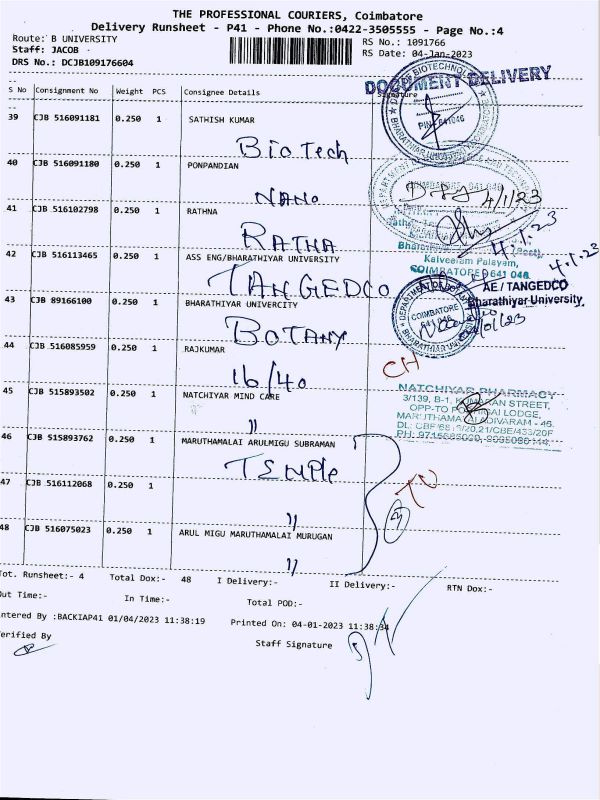 THE PROFESSIONAL COURIERS, Coimbatore
Delivery Runsheet - P41 - Phone No.:0422-3505555 - Page No.:4
Route: B UNIVERSITY
RS No.: 1091766
Staff: JACOB
RS Date: 04-Jan-2023
DRS No.: DCJB109176604
DOCUMENT DELIVERY
S No Consignment No Weight PCS Consignee Details Signature
39 CJB 516091181 0.250 1 SATHISH KUMAR
PIN 641046
BioTech
40 CJB 516091180 0.250 1 PONPANDIAN
NANO
4/1/23
41 CJB 516102798 0.250 1 RATHNA
RATHA
4.1.23
42 CJB 516113465 0.250 1 ASS ENG/BHARATHIYAR UNIVERSITY
Kalveeram Palayam,
COIMBATORE 641 046
TANGEDCO
4.1.23
AE / TANGEDCO
Bharathiyar University
43 CJB 89166100 0.250 1 BHARATHIYAR UNIVERCITY
COIMBATORE
641 046
BOTANY
44 CJB 516085959 0.250 1 RAJKUMAR
16/40
CH
45 CJB 515893502 0.250 1 NATCHIYAR MIND CARE
"
NATCHIYAR PHARMACY
3/139, B-1, KUMARAN STREET,
LODGE,
MARUTHAMALAI ADIVARAM - 46.
46 CJB 515893762 0.250 1 MARUTHAMALAI ARULMIGU SUBRAMAN
TEMPle
47 CJB 516112068 0.250 1
"
48 CJB 516075023 0.250 1 ARUL MIGU MARUTHAMALAI MURUGAN
"
Tot. Runsheet:- 4 Total Dox:- 48 I Delivery:- II Delivery:- RTN Dox:-
Out Time:- In Time:- Total POD:-
ntered By :BACKIAP41 01/04/2023 11:38:19 Printed On: 04-01-2023 11:38:34
erified By Staff Signature